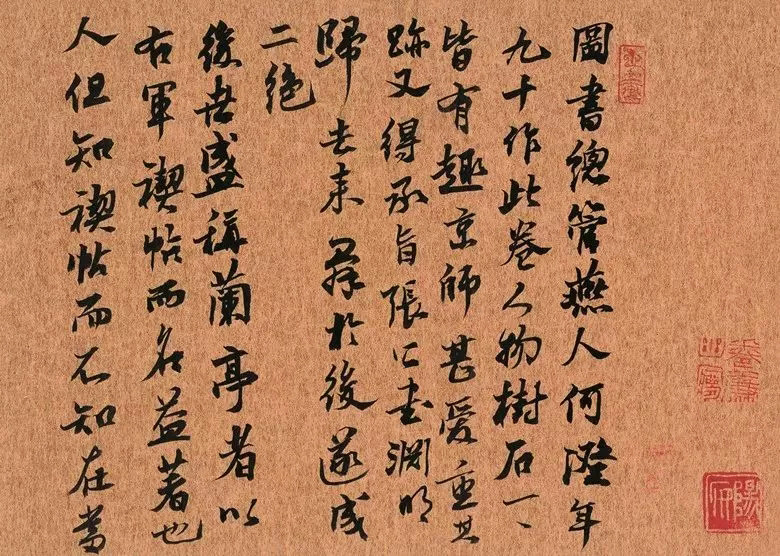 圖書總管燕人何澄年
九十作此卷人物樹石一一
皆有趣京師甚愛重其
跡又得承旨張公書淵明
歸去來辭於後遂成
二絕
後世盛稱蘭亭者以
右軍禊帖而名益著也
人但知禊帖而不知在當